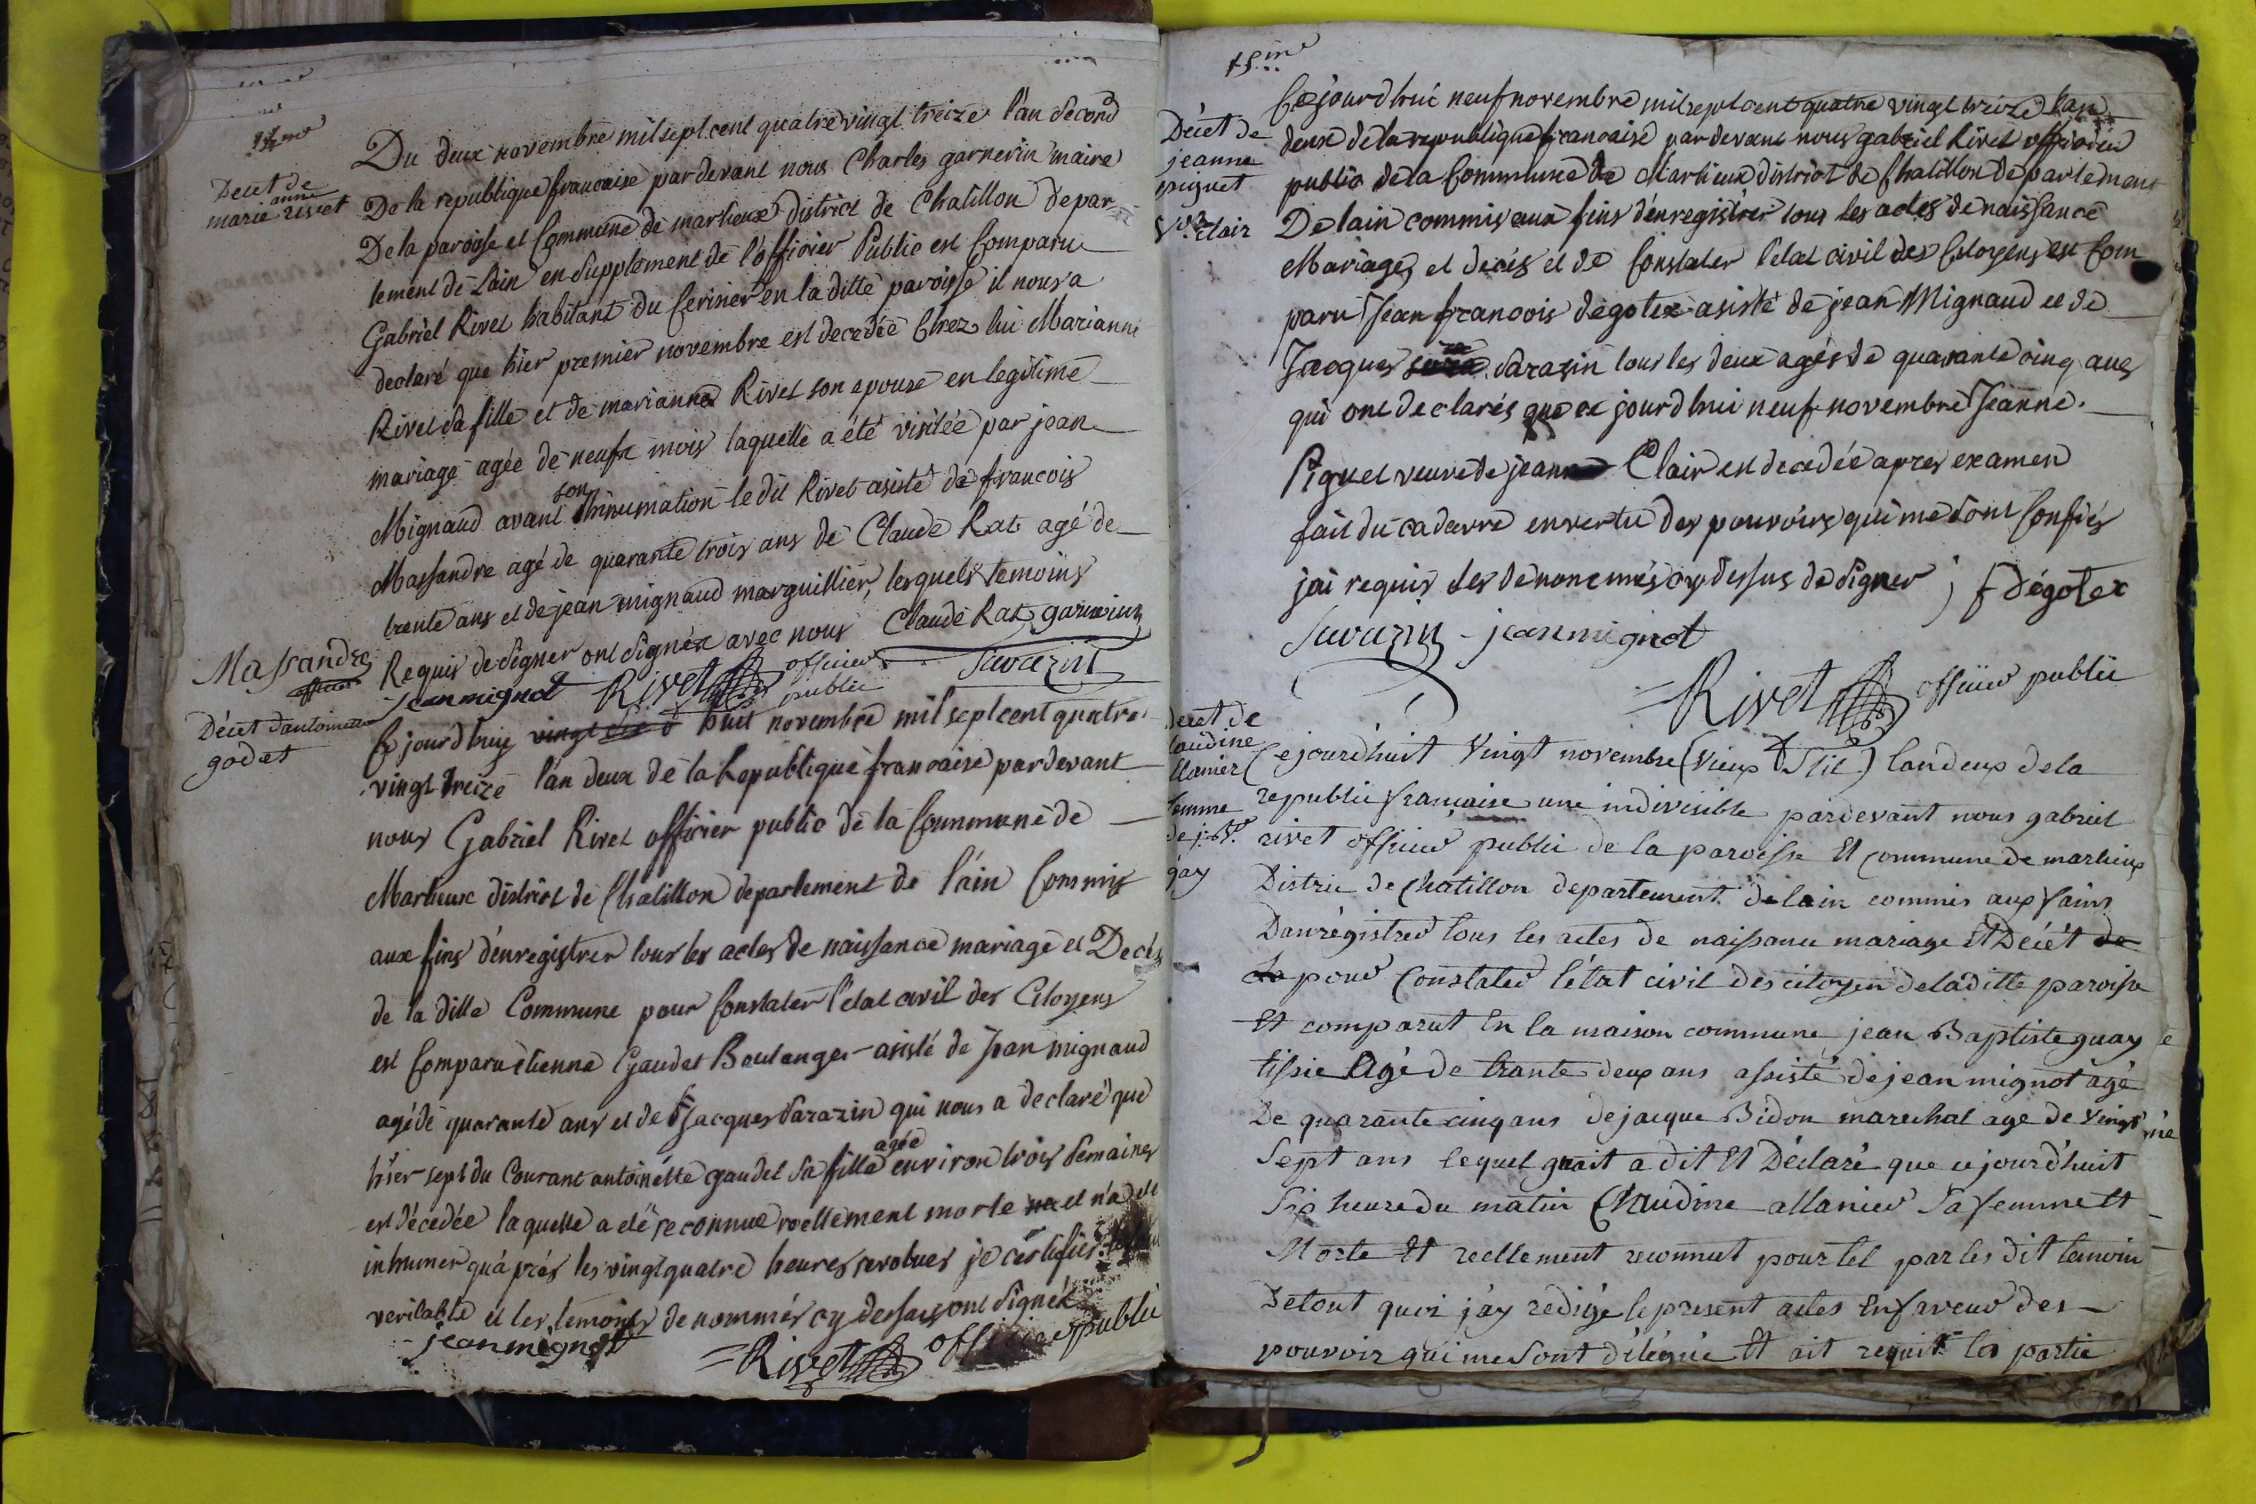 Decet de
marie anne rivet
Du deux novembre mil sept cent quatre vingt treize l'an second
De la republique francaise par devant nous Charles garnerin maire
De la paroisse et Commune de marlieux district de Chatillon depar
tement de Lain en supplement de l'officier Public est Comparu
Gabriel Rivet habitant du Cerisier en la ditte paroisse il nous a
declaré que hier premier novembre est decedée Chez lui Marianne
Rivet sa fille et de marianne Rivet son epouse en legitime
mariage agée de neufs mois laquelle a été visitée par jean
Mignaud avant son inhumation le dit Rivet asisté de francois
Massandre agé de quarante trois ans de Claude Rat agé de
trente ans et de jean mignaud marguillier, lesquels temoins
Requis de signer ont signéz avec nous Claude Rat garnerin
Massandre
jean mignot Rivet officier public Sarazin
Décet d'antoinette
godet
Ce jourd'huy huit novembre mil sept cent quatre
vingt treize l'an deux de la Republique francaise par devant
nous Gabriel Rivet officier public de la Commune de
Marlieux district de Chatillon departement de l'ain Commis
aux fins d'enregistrer tous les actes de naissance mariage et Decés
de la ditte Commune pour Constater l'etat civil des Citoyens
est Comparu étienne Gaudet Boulanger asisté de Jean mignaud
agé de quarante ans et de Jacques Sarazin qui nous a declaré que
hier sept du Courant antoinétte gaudet sa fille agée environ trois semaines
est décedée laquelle a eté reconnue réellement morte et n'a été
inhumer qu'aprés les vingt quatre heures revolues je certifier
veritable et les temoins denommés cy dessus ont signéz
jean mignot Rivet officier public
15.me
Décet de
jeanne
piguet
Vve clair
Ce jourd'hui neuf novembre mil sept cent quatre vingt treize l'an
deux de la republique francaise par devant nous gabriel Rivet officier
public de la Commune de Marlieux district de Chatillon departement
De lain commis aux fins d'enregistrer tous les actes de naissance
Mariages et decés et de Constater l'etat civil des Citoyens est Com
paru Jean francois dégotex asisté de jean Mignaud et de
Jacques Sarazin tous les deux agés de quarante cinq ans
qui ont declarés que ce jourd'hui neuf novembre Jeanne
Piguet veuve de jean Clair est decedée apres examen
fait du cadavre en vertu des pouvoirs qui me sont Confiés
jai requis les denommés cy dessus de signer j f Dégotex
Sarazin jean mignot
Rivet officier public
Decet de
laudine
llanier
femme
de j. Bte
gay
Ce jourd'huit vingt novembre (vieux Stil) lan deux de la
republic francaise une indivisible pardevant nous gabriel
rivet officier public de la paroisse Et Commune de marlieux
Distric de Chatillon departement de lain commis aux fains
Danrégistrer tous les actes de naissance mariage Et Décét de
pour Constater l'état civil des citoyen de la ditte paroisse
Et comparut En la maison commune jean Baptiste guay
tissie Agé de trante deux ans assisté de jean mignot agé
De quarante cinq ans de jacque Bidon marechal age de vingt
Sept ans lequel guait a dit Et Déclaré que ce jourd'huit
Six heure du matin Claudine allanier Sa femme Et
Morte Et reellement reconnut pour tel par les dit temoin
De tout quoi j'ay redigé le present actes En faveur des
pouvoir qui me Sont délégué Et ait requit la partie